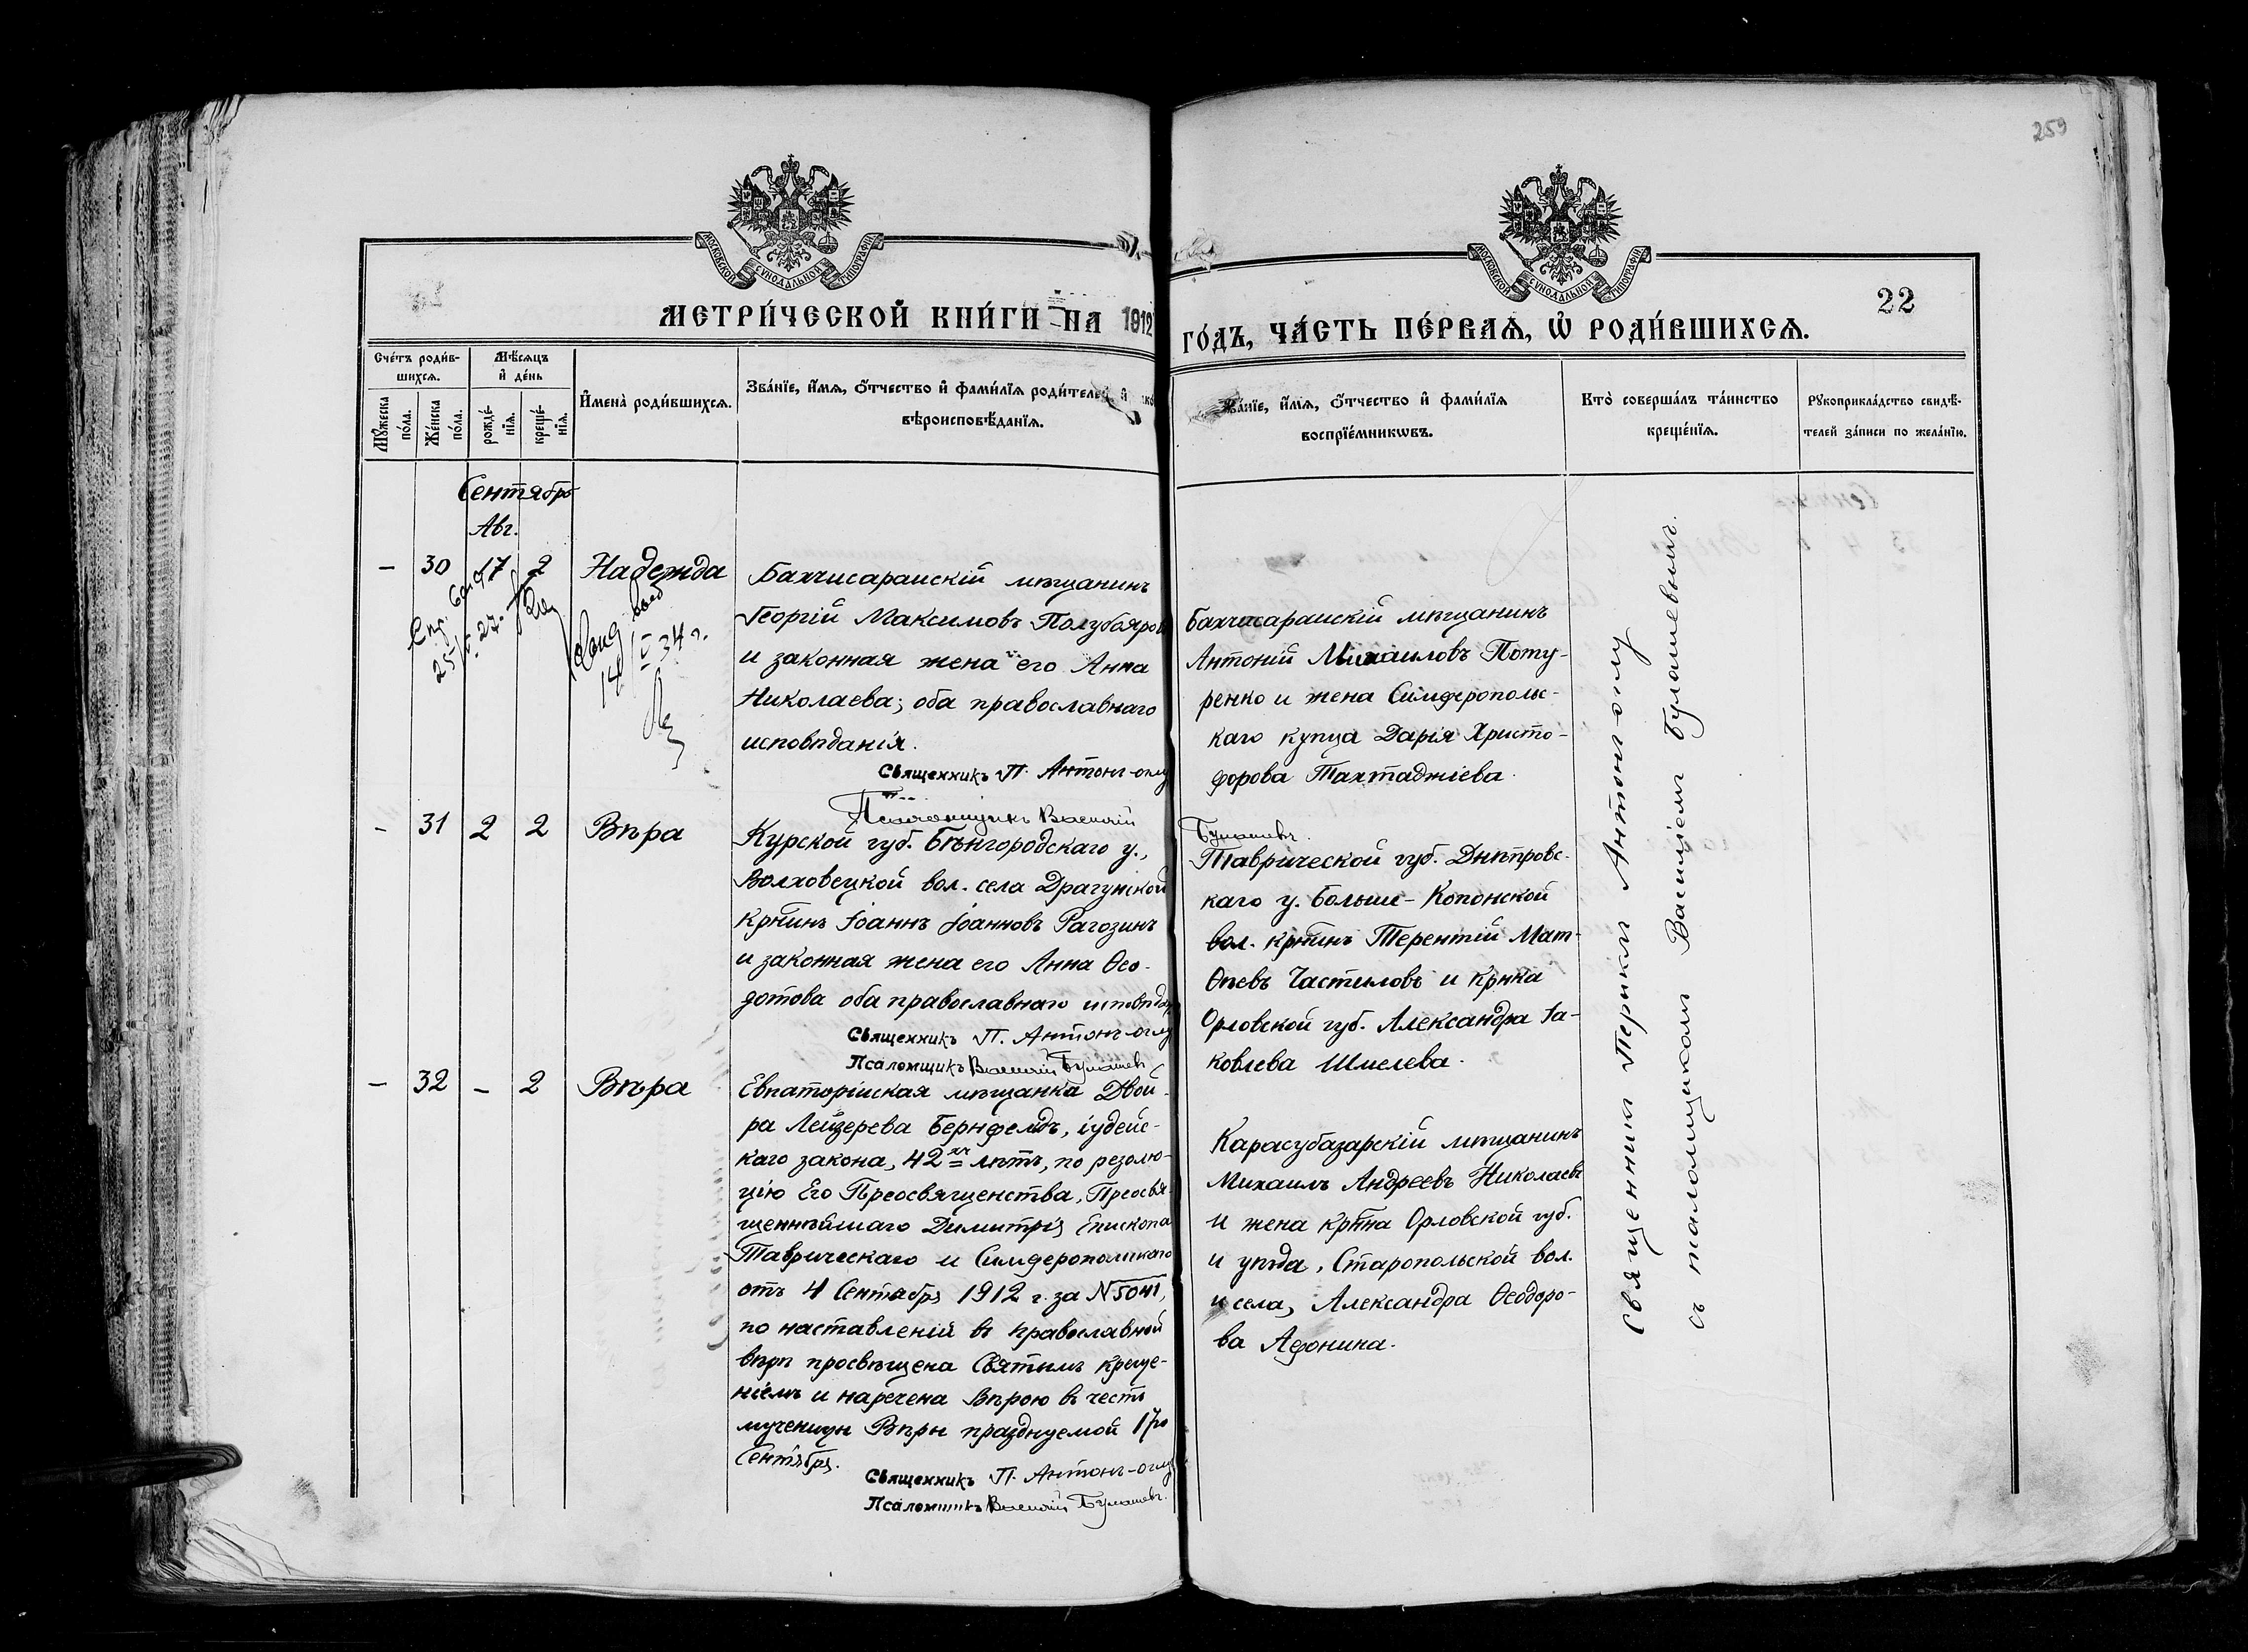 259
МОСКОВСКОЙ СѴНОДАЛЬНОЙ ТИПОГРАФІИ
МОСКОВСКОЙ СѴНОДАЛЬНОЙ ТИПОГРАФІИ
22
МЕТРИ́ЧЕСКОЙ КНИ́ГИ НА 1912
ГО́ДЪ, ЧА́СТЬ ПЕ́РВАЯ, Ѡ҆ РОДИ́ВШИХСЯ.
Сче́тъ роди́в-
шихся.
Мꙋ́жеска
по́ла.
Же́нска
по́ла.
Мѣ́сяцъ
и҆ де́нь
рожде́-
нїя.
креще́-
нїя.
И҆мена̀ роди́вшихся.
Зва́нїе, и҆́мя, ѻ҆́тчество и҆ фами́лїя роди́телей и҆
вѣроисповѣ́данїя.
Зва́нїе, и҆́мя, ѻ҆́тчество и҆ фами́лїя
воспрїе́мникѡвъ.
Кто̀ соверша́лъ та́инство
креще́нїя.
Рꙋкоприкла́дство свидѣ́-
телей за́писи по жела́нїю.
Сентябрь
Авг.
– 30 17 2 Надежда
25/ 27.
14/ 34 г.
Бахчисарайскій мѣщанинъ
Георгій Максимовъ Полубояров
и законная жена его Анна
Николаева; оба православнаго
исповѣданія.
Священникъ П. Антонъ-оглу
Псаломщикъ Василій
Булашевъ.
Бахчисарайскій мѣщанинъ
Антоній Михаиловъ Поту-
ренко и жена Симферополь-
скаго купца Дарія Христо-
форова Тахтаджіева.
– 31 2 2 Вѣра
Курской губ. Бѣлгородскаго у.,
Волховецкой вол. села Драгунской
крнинъ Іоаннъ Іоанновъ Рагозинъ
и законная жена его Анна Ѳео-
дотова оба православнаго исповѣд
Священникъ П. Антонъ-оглу
Псаломщикъ Василій Булашевъ
Таврической губ. Днѣпровс-
каго у. Больше-Копонской
вол. крнинъ Терентій Мат-
ѳѣевъ Частиловъ и крнка
Орловской губ. Александра Іа-
ковлева Шмелева.
– 32 – 2 Вѣра
Евпаторійская мѣщанка Двой-
ра Лейзерева Бернфельдъ, іудейс-
каго закона, 42хъ лѣтъ, по резолю-
ціи Его Преосвященства, Преосвя-
щеннѣйшаго Димитрія Епископа
Таврическаго и Симферопольскаго
отъ 4 Сентября 1912 г. за N 5041,
по наставленій въ православной
вѣрѣ просвѣщена Святымъ креще-
ніемъ и наречена Вѣрою въ честь
мученицы Вѣры празднуемой 17го
Сентября.
Священникъ П. Антонъ-оглу
Псаломщикъ Василій Булашевъ.
Карасубазарскій мѣщанинъ
Михаилъ Андреевъ Николаевъ
и жена крнина Орловской губ.
и уѣзда, Старопольской вол.
и села, Александра Ѳеодоро-
ва Афонина.
Священникъ Периклъ Антонъ-оглу
съ псаломщикомъ Василіемъ Булашевымъ.